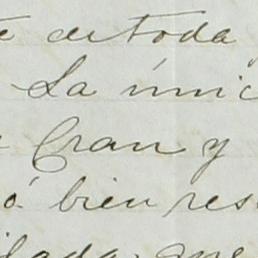 de toda
La únic
Cran y
ó bien res